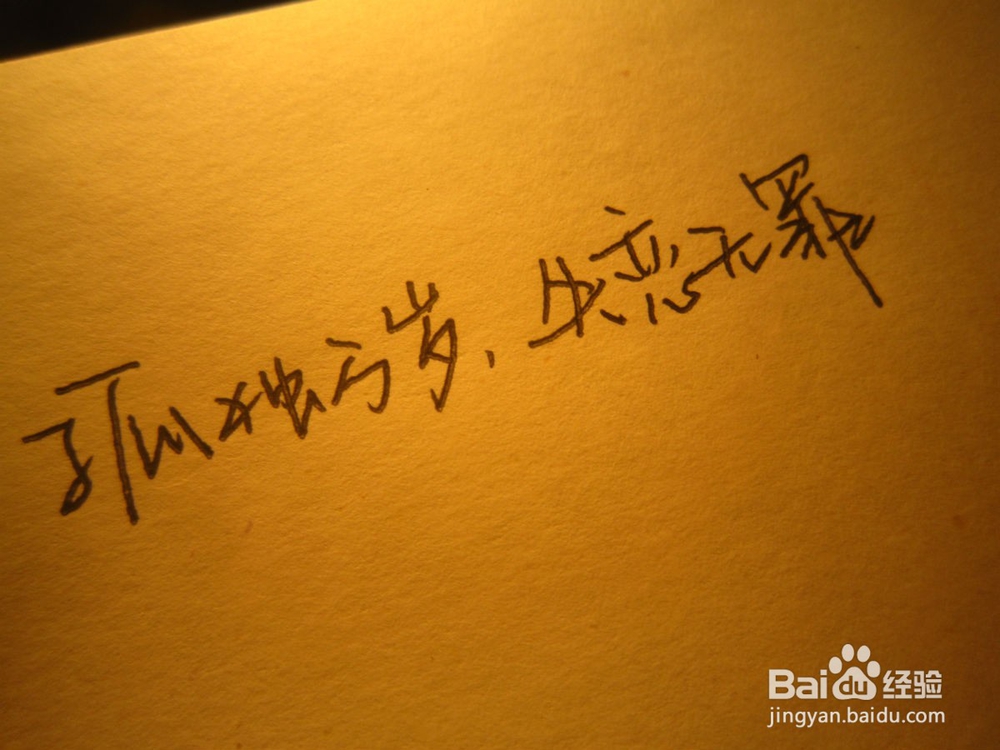 孤独万岁，失恋无罪
Baidu经验
jingyan.baidu.com